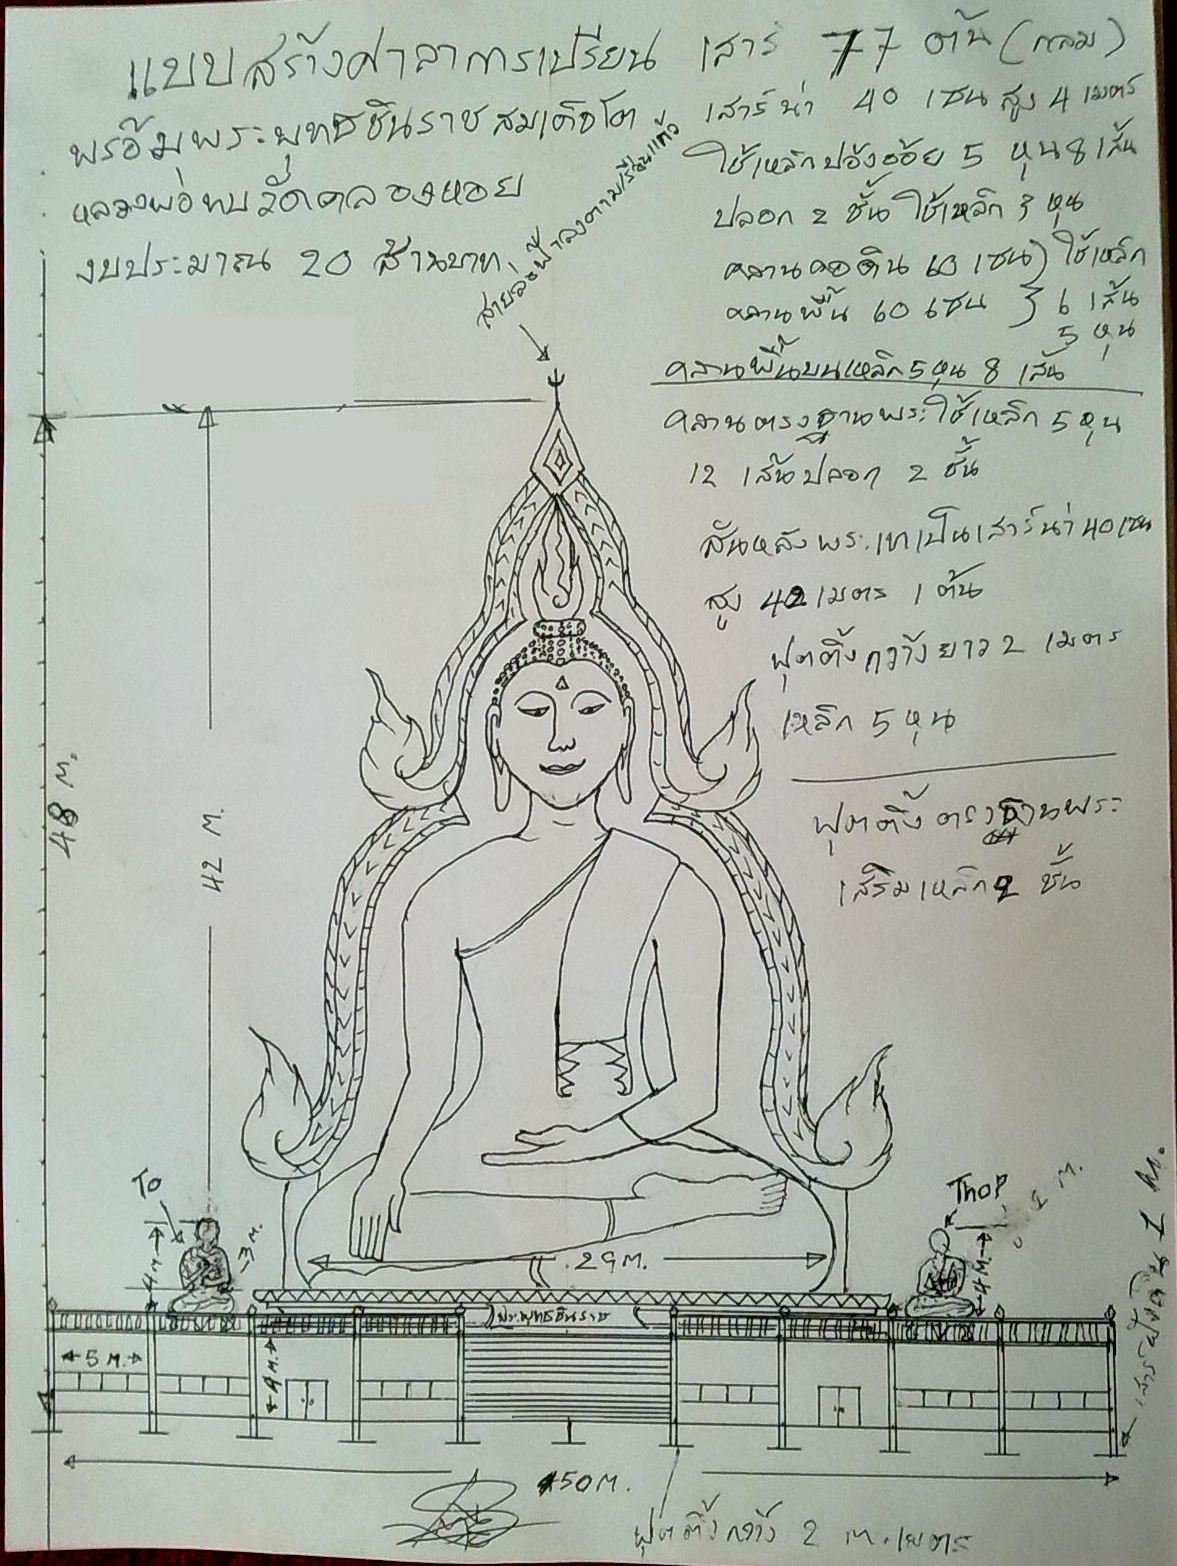 แบบสร้างศาลาการเปรียน เสาร์ 77 ต้น (กลม)
พร้อมพระพุทธชินราชสมเด็จโต
หลวงพ่อทบวัดคลองหอย
งบประมาณ 20 ล้านบาท
สายล่อฟ้าลงตามเรือนแก้ว
เสาร์น่า 40 เซน สูง 4 เมตร
ใช้เหล็กปล้องอ้อย 5 หุน 8 เส้น
ปลอก 2 ชั้น ใช้เหล็ก 3 หุน
คลานคอดิน 60 เซน) ใช้เหล็ก
คลานพื้น 60 เซน } 6 เส้น
5 หุน
คลานพื้นบนเหล็ก 5 หุน 8 เส้น
คลานตรงฐานพระใช้เหล็ก 5 หุน
12 เส้นปลอก 2 ชั้น
สันหลังพระเทเป็นเสาร์น่า 40 เซน
สูง 42 เมตร 1 ต้น
ฟุตติ้งกว้างยาว 2 เมตร
เหล็ก 5 หุน
ฟุตติ้งตรงฐานพระ
เสริมเหล็ก 2 ชั้น
48 ม.
42 ม.
To
Thop
4 ม
3 ม.
4 ม
ม.
29 ม.
พระพุทธชินราช
5 ม.
4 ม.
50 ม.
ฟุตติ้งกว้าง 2 ม. เมตร